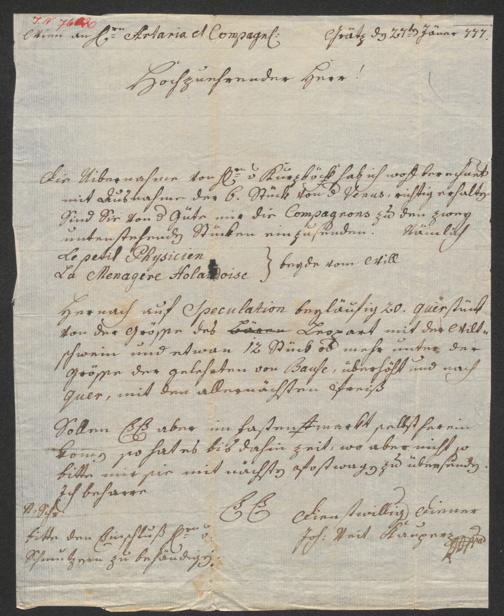 Wien an Hrn Artaria et Compagnie: Grätz dn 27ten Jäner 777.
Hochzuehrender Herr!
die Übernahme von Hrn v Kurzböck hab ich wohl berechnet
mit Ausnahme der 6. Stück von d Venus. richtig erhalten
Sind Sie von d Güte mir die Compagnons zu den zwey
untenstehenden Stücken einzusenden. Nämlich
Le petit Physicien
La Menagere Holandoise } beyde vom Will
Hernach auf Speculation beyläufig 20. querstück
von der Grösse des Bären Leopart mit der Wilt
schwein und etwan 12 Stück od mehr unter der
Grösse der gelehrten von Bause, überhöht und nach
quer, mit den allernächsten Preiß
Sollen aber im fastenmarkt selbst herein
komen so hat es bis dahin zeit, wo aber nicht so
bitte mir sie mit nächsten Postwagen zu übersenden.
Ich beharre
dienstwilligster Diener
Joh: Veit Kauperz
bitte den Einschluß Hrn v
Schmutzern zu behändigen